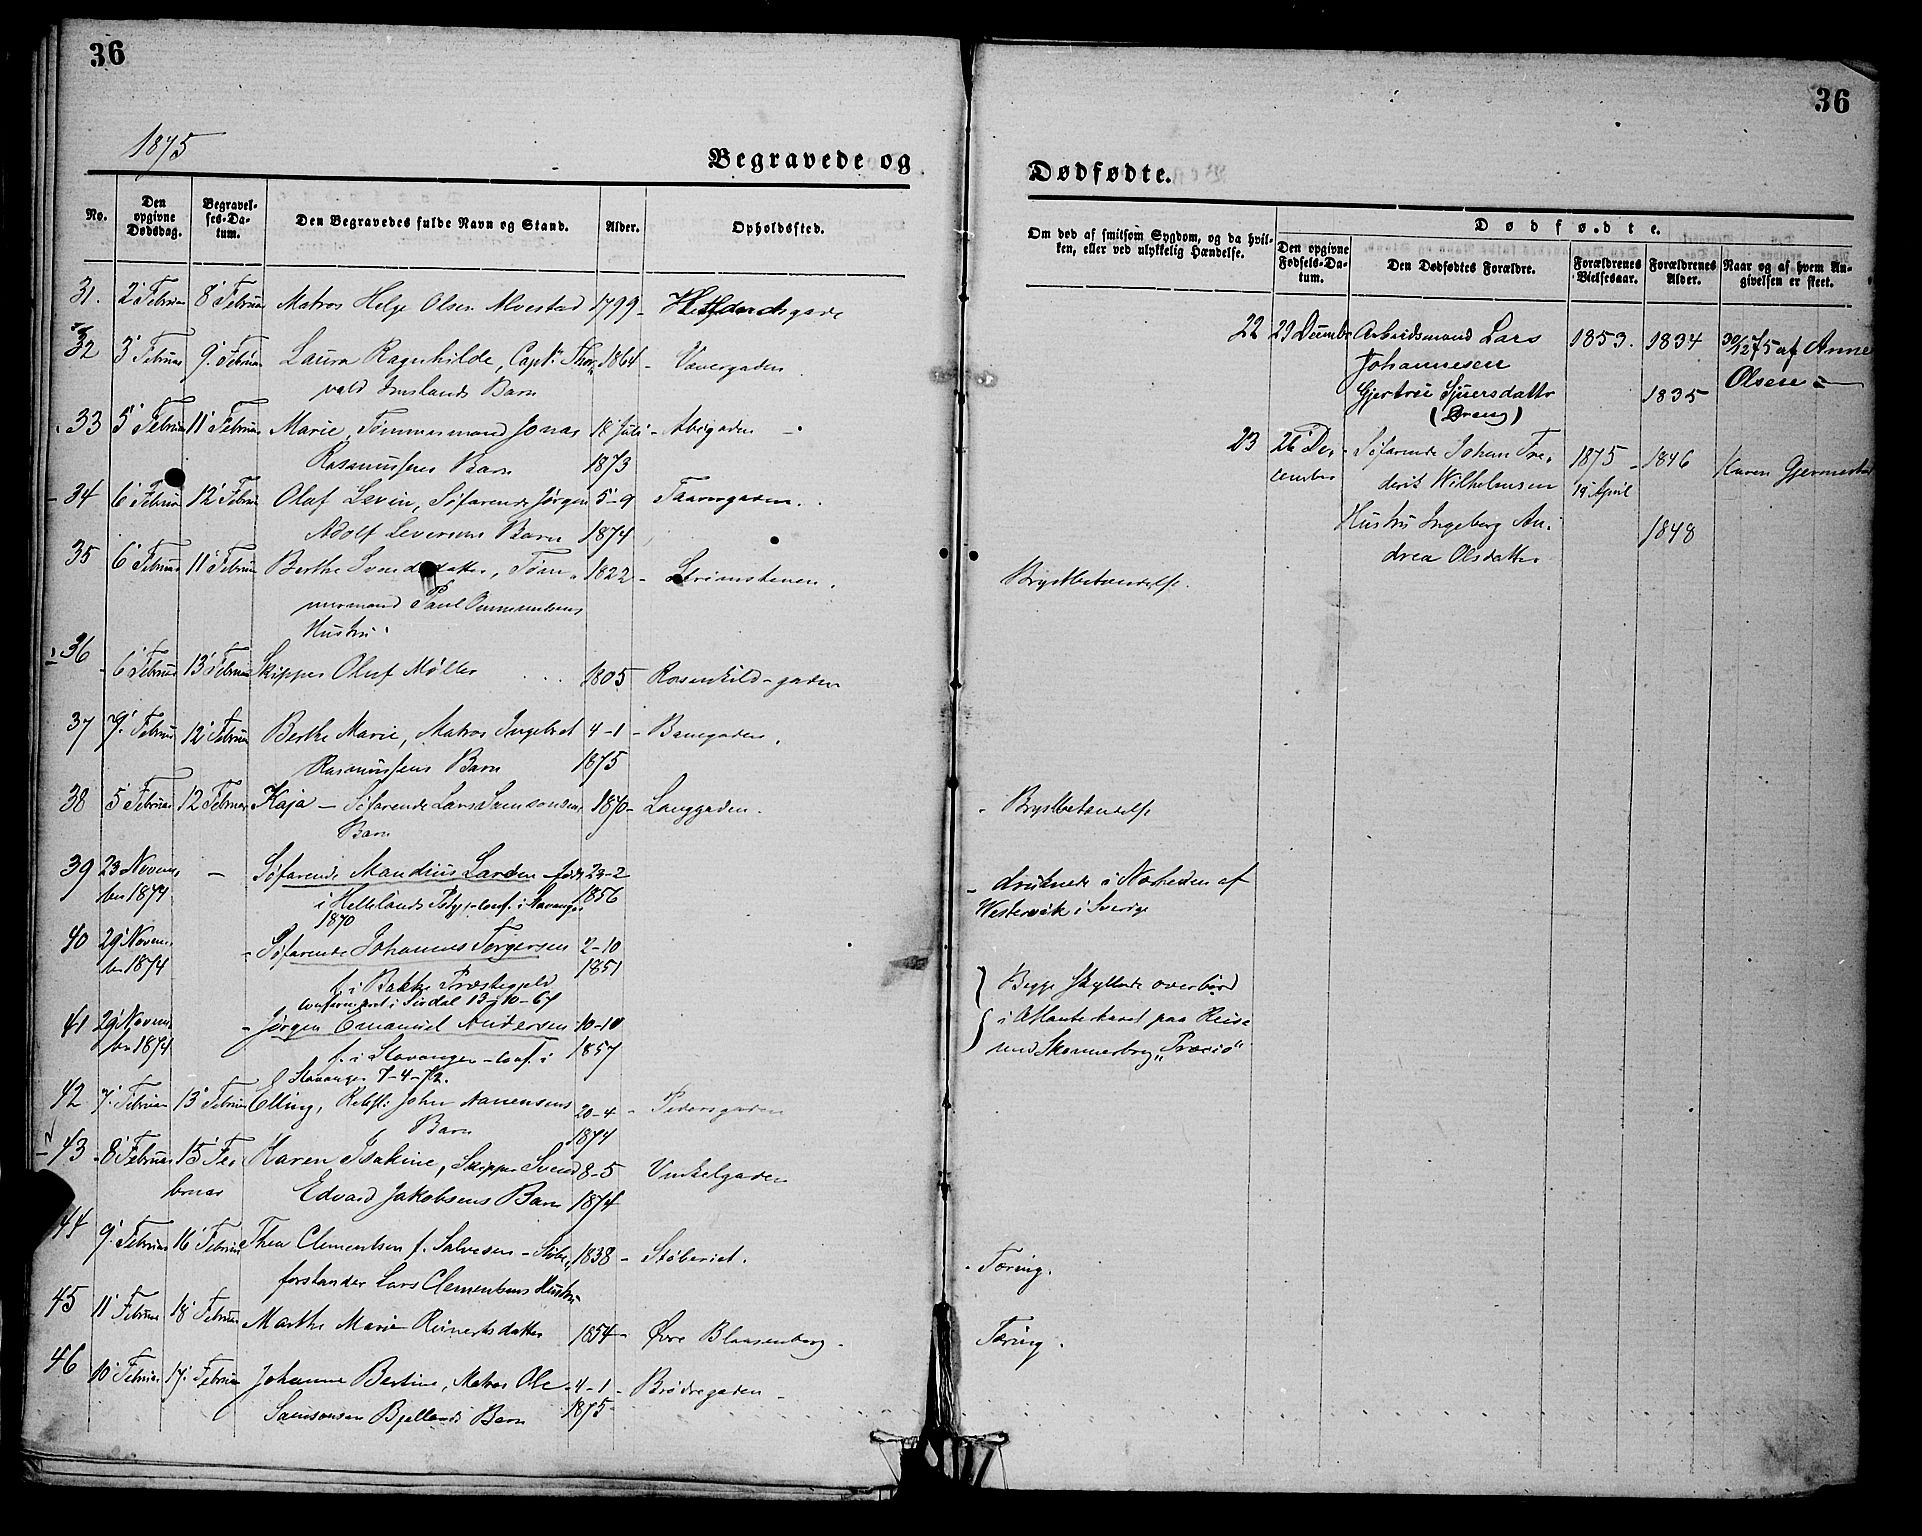 36
1875
Begravede og
No.
Den opgivne Dødsdag.
Begravelses-Datum.
Den Begravedes fulde Navn og Stand.
Alder.
Opholdssted.
31. 2' Februar 8' Februar Matros Helge Olsen Alvestad 1799 -
32 3' Februar 9' Februar Laura Ragnhilde, Capt. Thor- 1864 -
vald Imslands Barn
33 5' Februar 11' Februar Marie, Tømmermand Jonas 18' Juli -
Rasmussens Barn 1873
34 6' Februar 12' Februar Olaf Severin, Søfarende Jørgen 5-9
Adolf Seversens Barn 1874
35 6' Februar 11' Februar Berthe Svendsdatter, Tøm- 1822 - Strømstenen.
mermand Paul Ommundsens
Hustru
36 6' Februar 13' Februar Skipper Oluf Møller 1805 Rosenkildegaden
37 9' Februar 12' Februar Berthe Marie, Matros Ingebret 4-1 - Banegaden.
Rasmussens Barn 1875
38 5' Februar 12' Februar Kaja - Søfarende Lars Samsonsens 1870 - Langgaden.
Barn
39 23 Novem- - Søfarende Mandius Larsen - født 23-2
ber 1874 i Hellelands Pstgj. - conf. i Stavanger 1856
1870
40 29' Novem- - Søfarende Johannes Torgersen 2-10
ber 1874 1851
f. i Bakke Præstegjeld
confirmeret i Sirdal 13-10-67
41 29' Novem- - Jørgen Emanuel Andersen 10-10
ber 1874 f. i Stavanger - conf. i 1857
Stavanger 7-4-72.
42 7' Februar 13' Februar Elling, Rebsl. John Aanensens 20-4 - Pedersgaden
Barn 1874
43 8' Februar 15' Fe- Karen Isakine, Skipper Svend 8-5 Vinkelgaden
bruar Edvard Jakobsens Barn 1874
44 9' Februar 16' Februar Thea Clementsen f. Salvesen - Støbe- 1838 - Støberiet.
forstander Lars Clementsens Hustru
45 11' Februar 18' Februar Marthe Marie Reinertsdatter 1854 - Øvre Blaasenborg -
46 10' Februar 17' Februar Johanne Bertine, Matros Ole 4-1 - Brødregaden -
Samsonsen Bjellands Barn 1875
36
Dødfødte.
Om død af smitsom Sygdom, og da hvil-
ken, eller ved ulykkelig Hændelse.
Dødfødte.
Den opgivne Fødsels-Datum.
Den Dødfødtes Forældre.
Forældrenes Vielsesaar.
Forældrenes Alder.
Naar og af hvem Angivelsen er skeet.
22 29 Decembr Arbeidsmand Lars 1853. 1834 30/12 75 af Anne
Johannesen Olsen
Gjertrue Sjursdatter 1835
(Dreng)
23 26' De- Søfarende Johan Fre- 1875 - 1846 Karen
cember derik Wilhelmsen 19' April
Hustru Ingeborg An- 1848
drea Olsdatter
Brystbetændelse.
- Brystbetændelse
- druknede i Nærheden af
Westervik i Sverige
Begge skyllede overbord
i Atlanterhavet paa Reise
med Skonnerbrig
- Tæring.
Tæring.